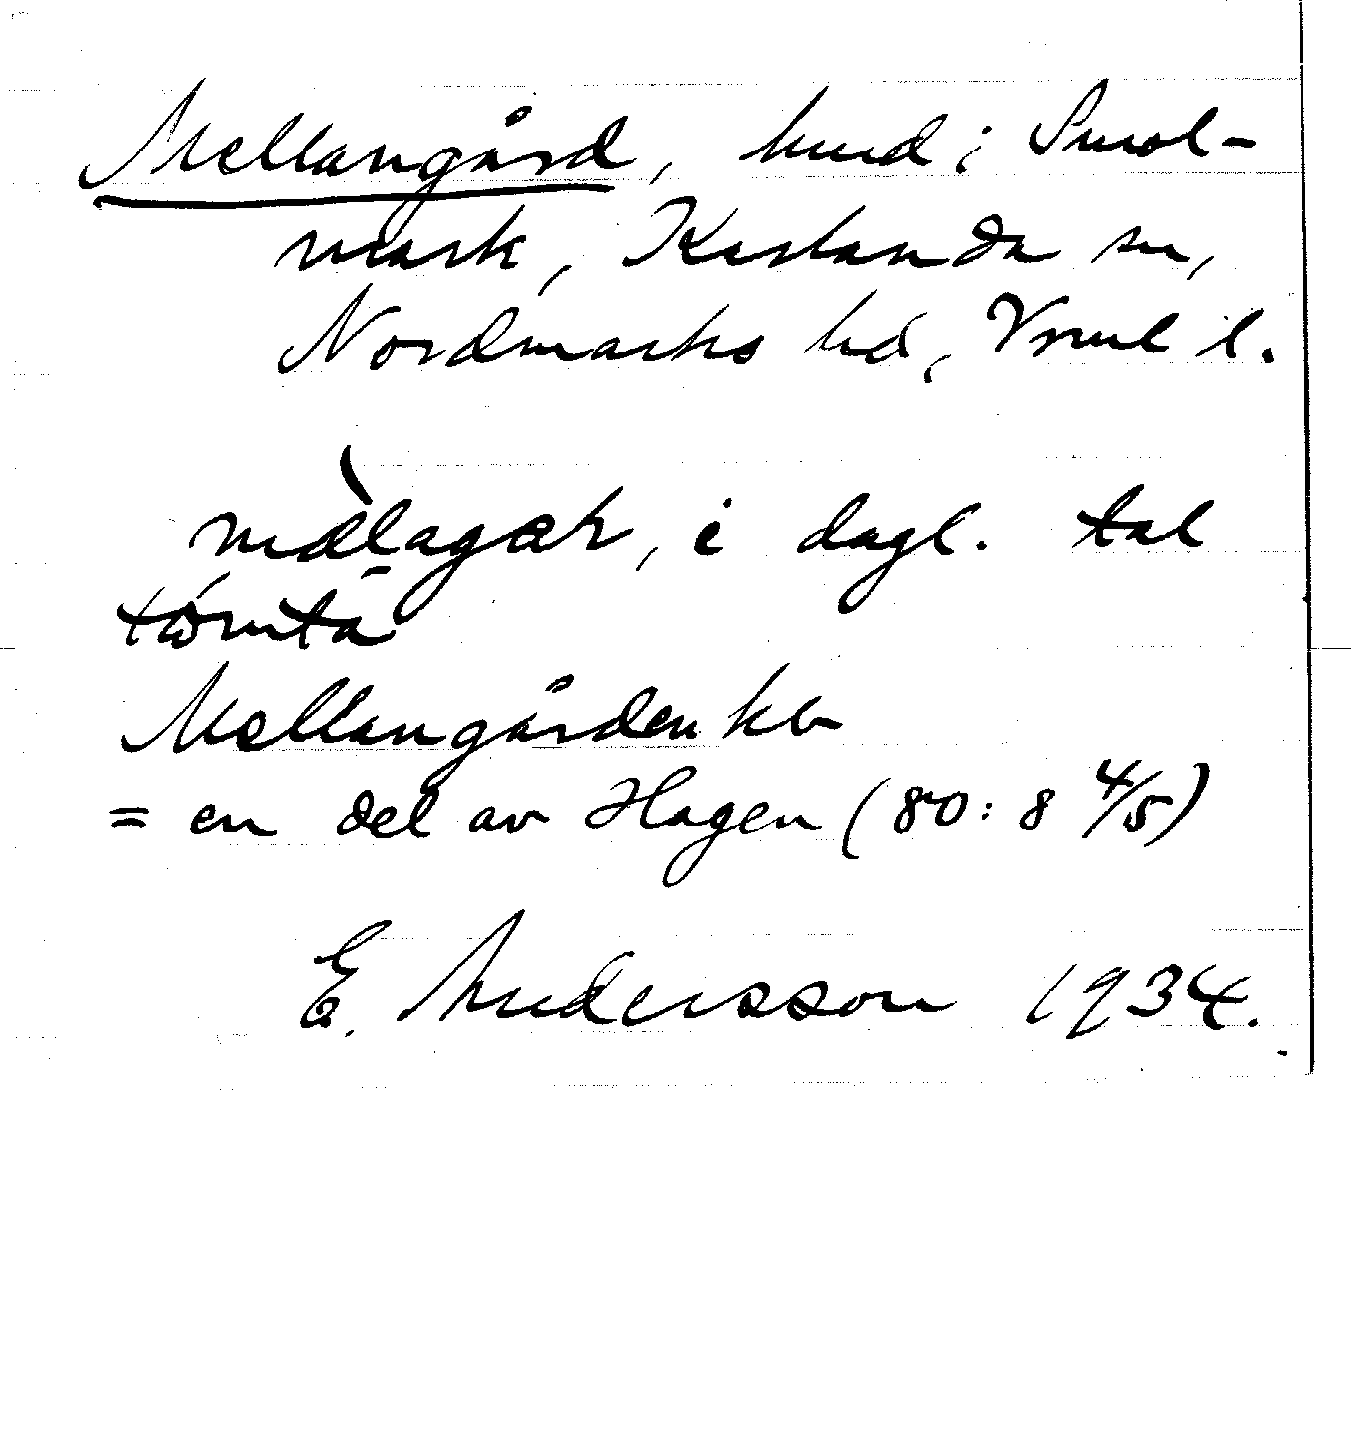 Mellangård, hmd i Smol-
mark, Karlanda sn,
Nordmarks hd, Vrml l.
mælagaɽ, i dagl. tal
tomta
Mellangården ka
= en del av Hagen (80:8 4/5)
E. Andersson 1934.